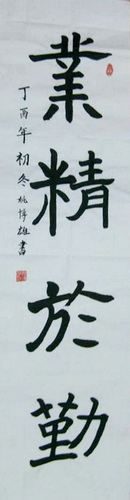 業精於勤
丁酉年初冬姚博雄書